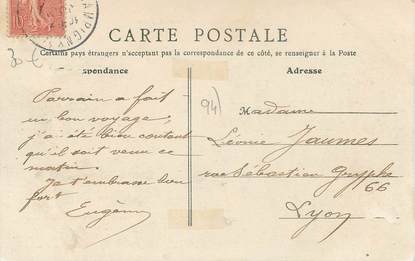 AMPIGNY
10
30 €
CARTE POSTALE
Certains pays étrangers n'acceptant pas la correspondance de ce côté, se renseigner à la Poste
spondance
Adresse
Parrain a fait
un bon voyage,
j'ai été bien contant
qu'il soit venu ce
matin.
Je t'embrasse bien
fort
Eugène
94)
Madame
Léonie Jaumes
rue Sébastien Gryphe
66
Lyon